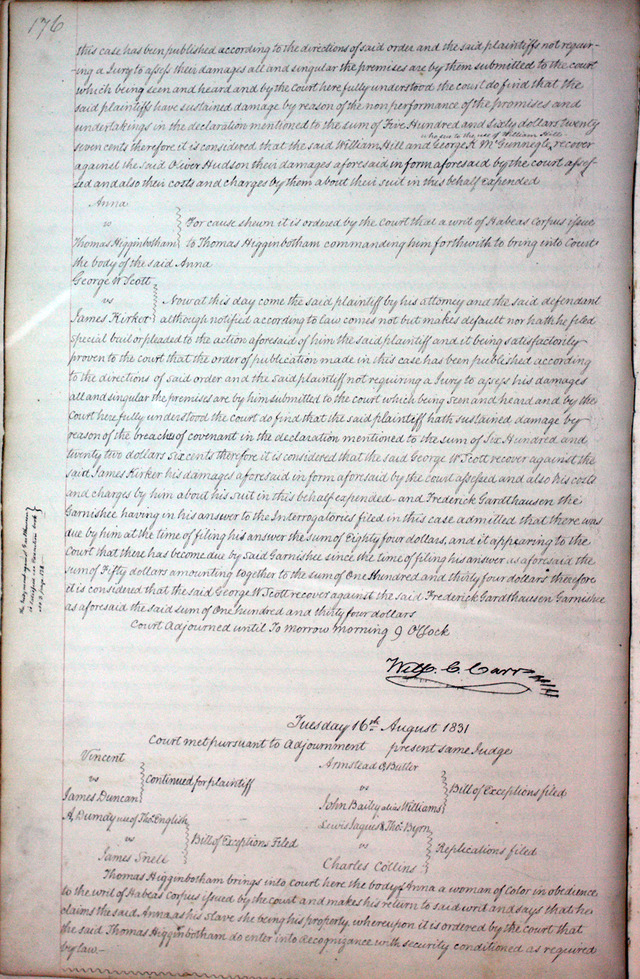 176
this case has been published according to the directions of said order and the said plaintiffs not requir-
ing a Jury to assess their damages all and singular the premises are by them submitted to the court
which being seen and heard and by the court here fully understood the court do find that the
said plaintiffs have sustained damage by reason of the nonperformance of the promises and
undertakings in the declaration mentioned to the sum of Five Hundred and Sixty dollars twenty
who sue to the use of William Hill
seven cents therefore it is considered that the said William Hill and George K. McGunnegle recover
against the said Oliver Hudson their damages aforesaid in form aforesaid by the court asses-
sed and also their costs and charges by them about their suit in this behalf expended
Anna
vs
For cause shewn it is ordered by the Court that a writ of Habeas Corpus issue
Thomas Higginbotham to Thomas Higginbotham commanding him forthwith to bring into Court
the body of the said Anna
George W Scott
vs
Now at this day come the said plaintiff by his attorney and the said defendant
James Kirker although notified according to law comes not but makes default nor hath he filed
special bail or pleaded to the action aforesaid of him the said plaintiff and it being satisfactorily
proven to the court that the order of publication made in this case has been published according
to the directions of said order and the said plaintiff not requiring a Jury to assess his damages
all and singular the premises are by him submitted to the court which being seen and heard and by the
Court here fully understood the court do find that the said plaintiff hath sustained damage by
reason of the breachs of covenant in the declaration mentioned to the sum of Six Hundred and
twenty two dollars six cents therefore it is considered that the said George W Scott recover against the
said James Kirker his damages aforesaid in form aforesaid by the court assessed and also his costs
and charges by him about his suit in this behalf expended and Frederick Gardthausen the
Garnishee having in his answer to the Interrogatories filed in this case admitted that there was
due by him at the time of filing his answer the sum of Eighty four dollars, and it appearing to the
Court that there has become due by said Garnishee since the time of filing his answer as aforesaid the
sum of Fifty dollars amounting together to the sum of One Hundred and thirty four dollars therefore
it is considered that the said George W Scott recover against the said Frederick Gardthausen Garnishee
as aforesaid the said sum of one hundred and thirty four dollars
Court Adjourned until To morrow morning 9 O'Clock
Wm. C. Carr
Tuesday 16th August 1831
Court met pursuant to Adjournment present same Judge
Vincent
vs
Continued for plaintiff
James Duncan
Armstead O. Butler
vs
Bill of Exceptions filed
John Baily alias Williams
A. Dumay use of Thos. English
vs
Bill of Exceptions Filed
James Snell
Lewis Jaques & Thos. Byrn
vs
Replications filed
Charles Collins
Thomas Higginbotham brings into court here the body of Anna a woman of color in obedience
to the writ of Habeas Corpus issued by the court and makes his return to said writ and says that he
claims the said Anna, as his slave she being his property. whereupon it is ordered by the court that
the said Thomas Higginbotham do enter into Recognizance with security conditioned as required
by law